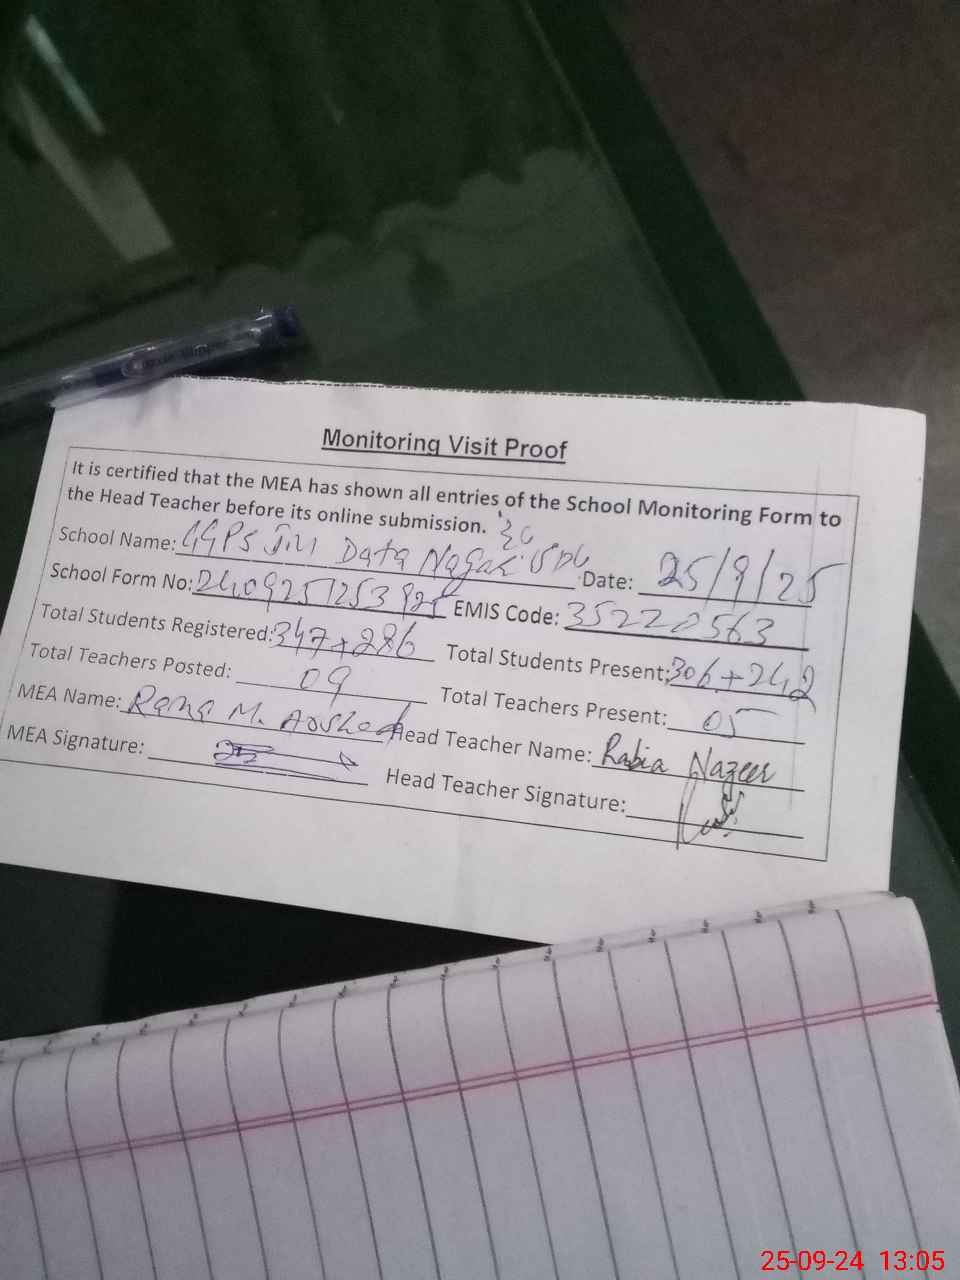 Monitoring Visit Proof
It is certified that the MEA has shown all entries of the School Monitoring Form to
the Head Teacher before its online submission.
School Name: GGPS Data Nagar Date: 25/9/25
School Form No: EMIS Code: 35220563
Total Students Registered: 347+286 Total Students Present: 306+242
Total Teachers Posted: 09 Total Teachers Present: 05
MEA Name: Rana M. Arshad Head Teacher Name: Rabia Nazeer
MEA Signature: Head Teacher Signature:
25-09-24 13:05